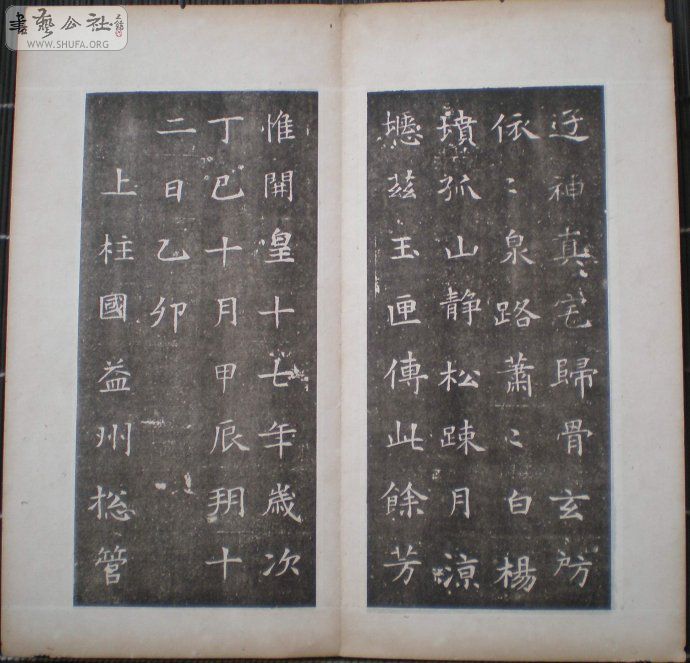 書藝公社
WWW.SHUFA.ORG
迁神真宅歸骨玄房
依〻泉路蕭〻白楊
墳孤山静松踈月涼
茲玉匣傳此餘芳
惟開皇十七年歳次
丁巳十月甲辰朔十
二日乙卯
上柱國益州捴管